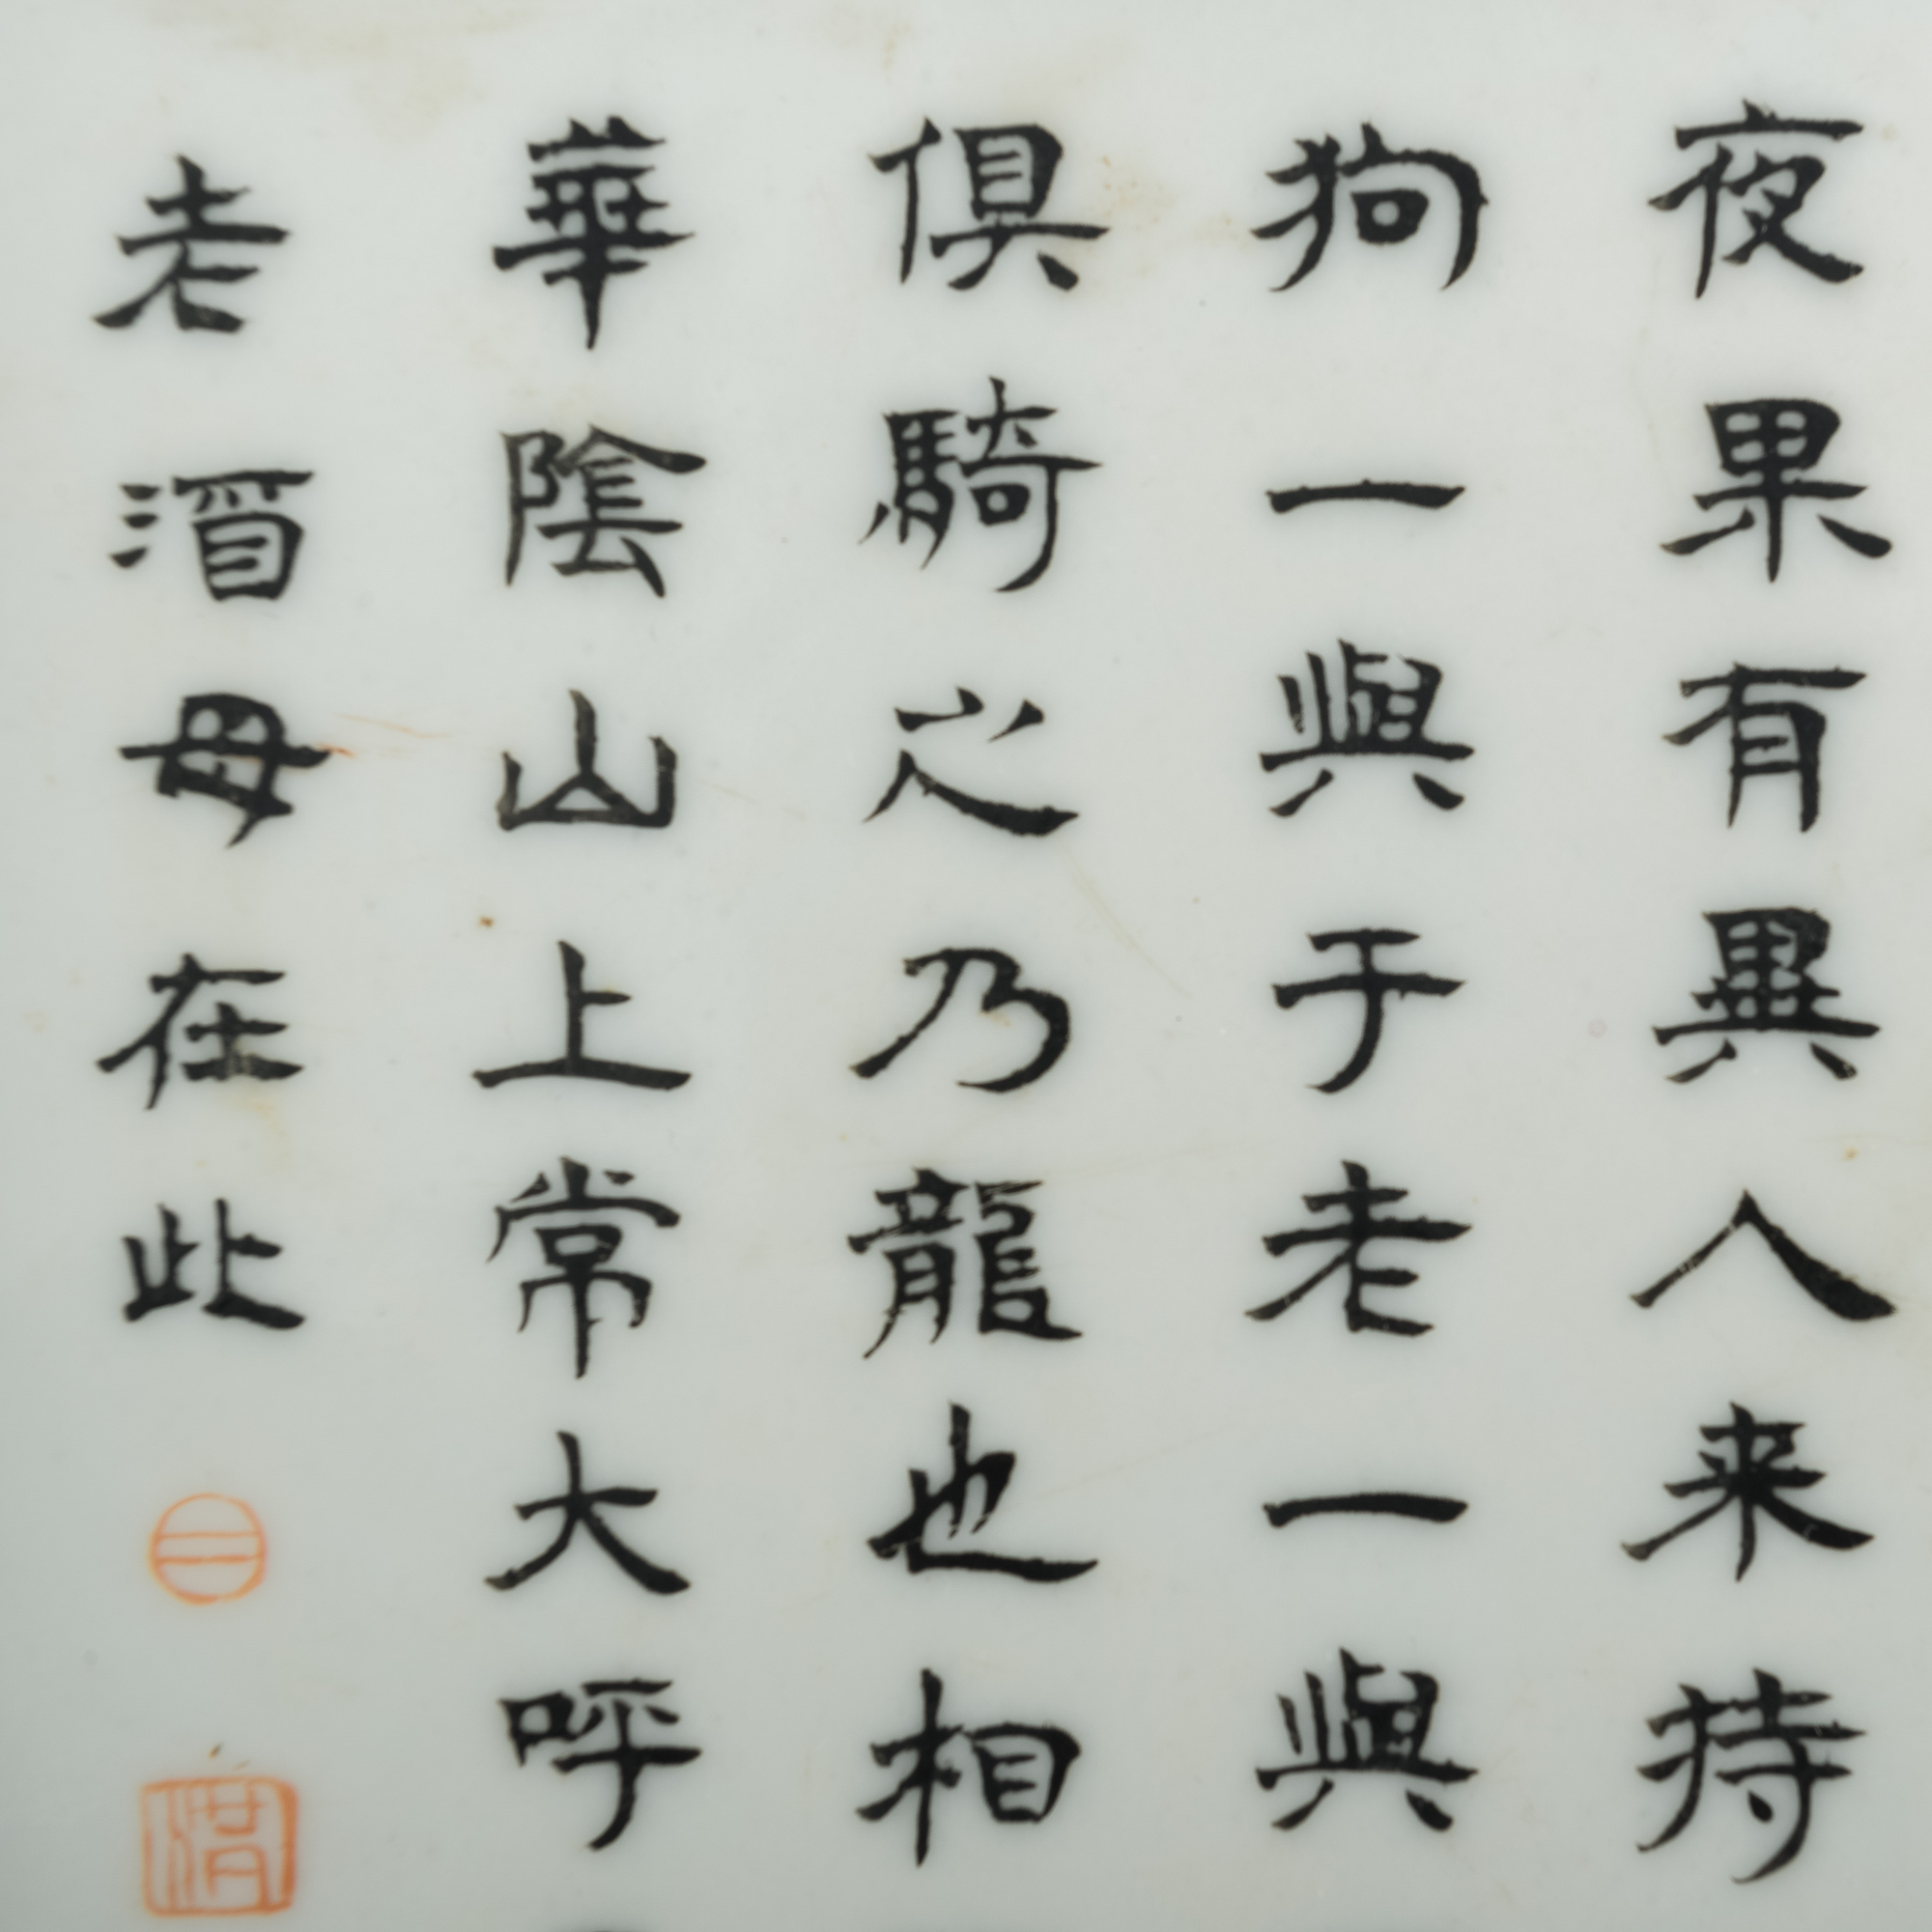 夜果有異人来持
狗一與于老一與
俱騎之乃龍也相
華陰山上常大呼
老酒母在此